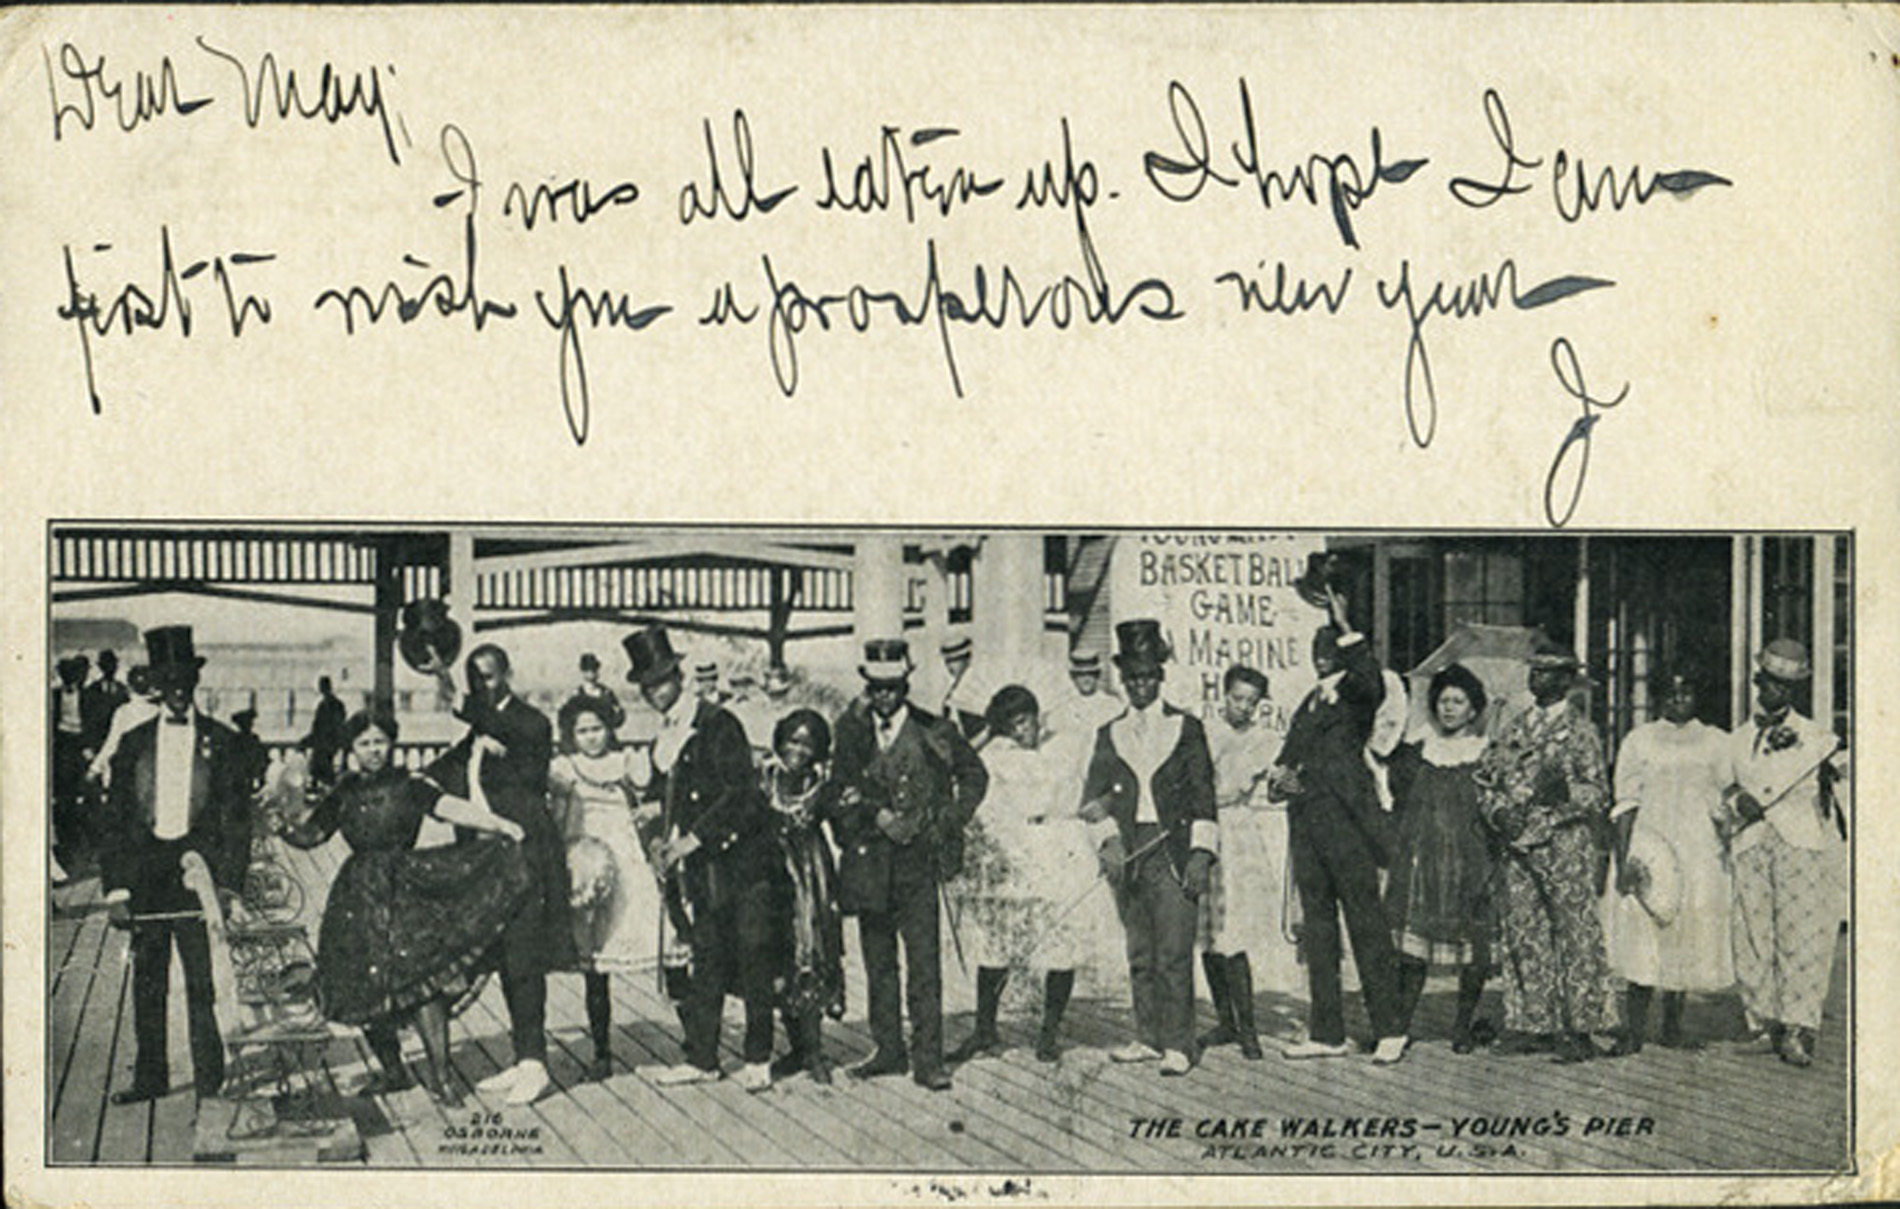 Dear May;
I was all eaten up. I hope I am
first to wish you a prosperous new year
J
BASKET BALL
GAME
A MARINE
216
OSBORNE
PHILADELPHIA
THE CAKE WALKERS—YOUNG'S PIER
ATLANTIC CITY, U.S.A.